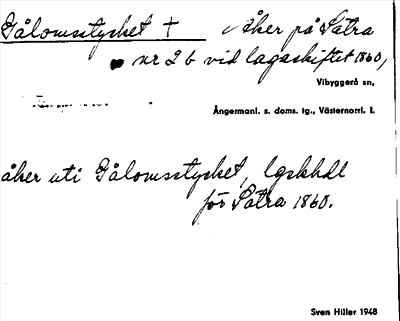 Gålomsstycket † åker på Sätra
nr 2 b vid lagaskiftet 1860,
Vibyggerå sn,
Ångermanl. s. doms. jg., Västernorrl. l.
åker uti Gålomsstycket, Lgskhdl
för Sätra 1860.
Sven Hiller 1948